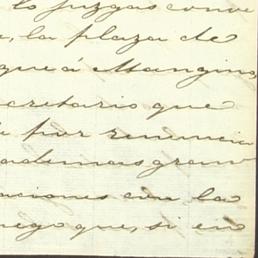 lo juzgas conve
, la plaza de
que á Mangino,
cretario que
por renuncia
ademas gran
aciones con la
ruego que, si en